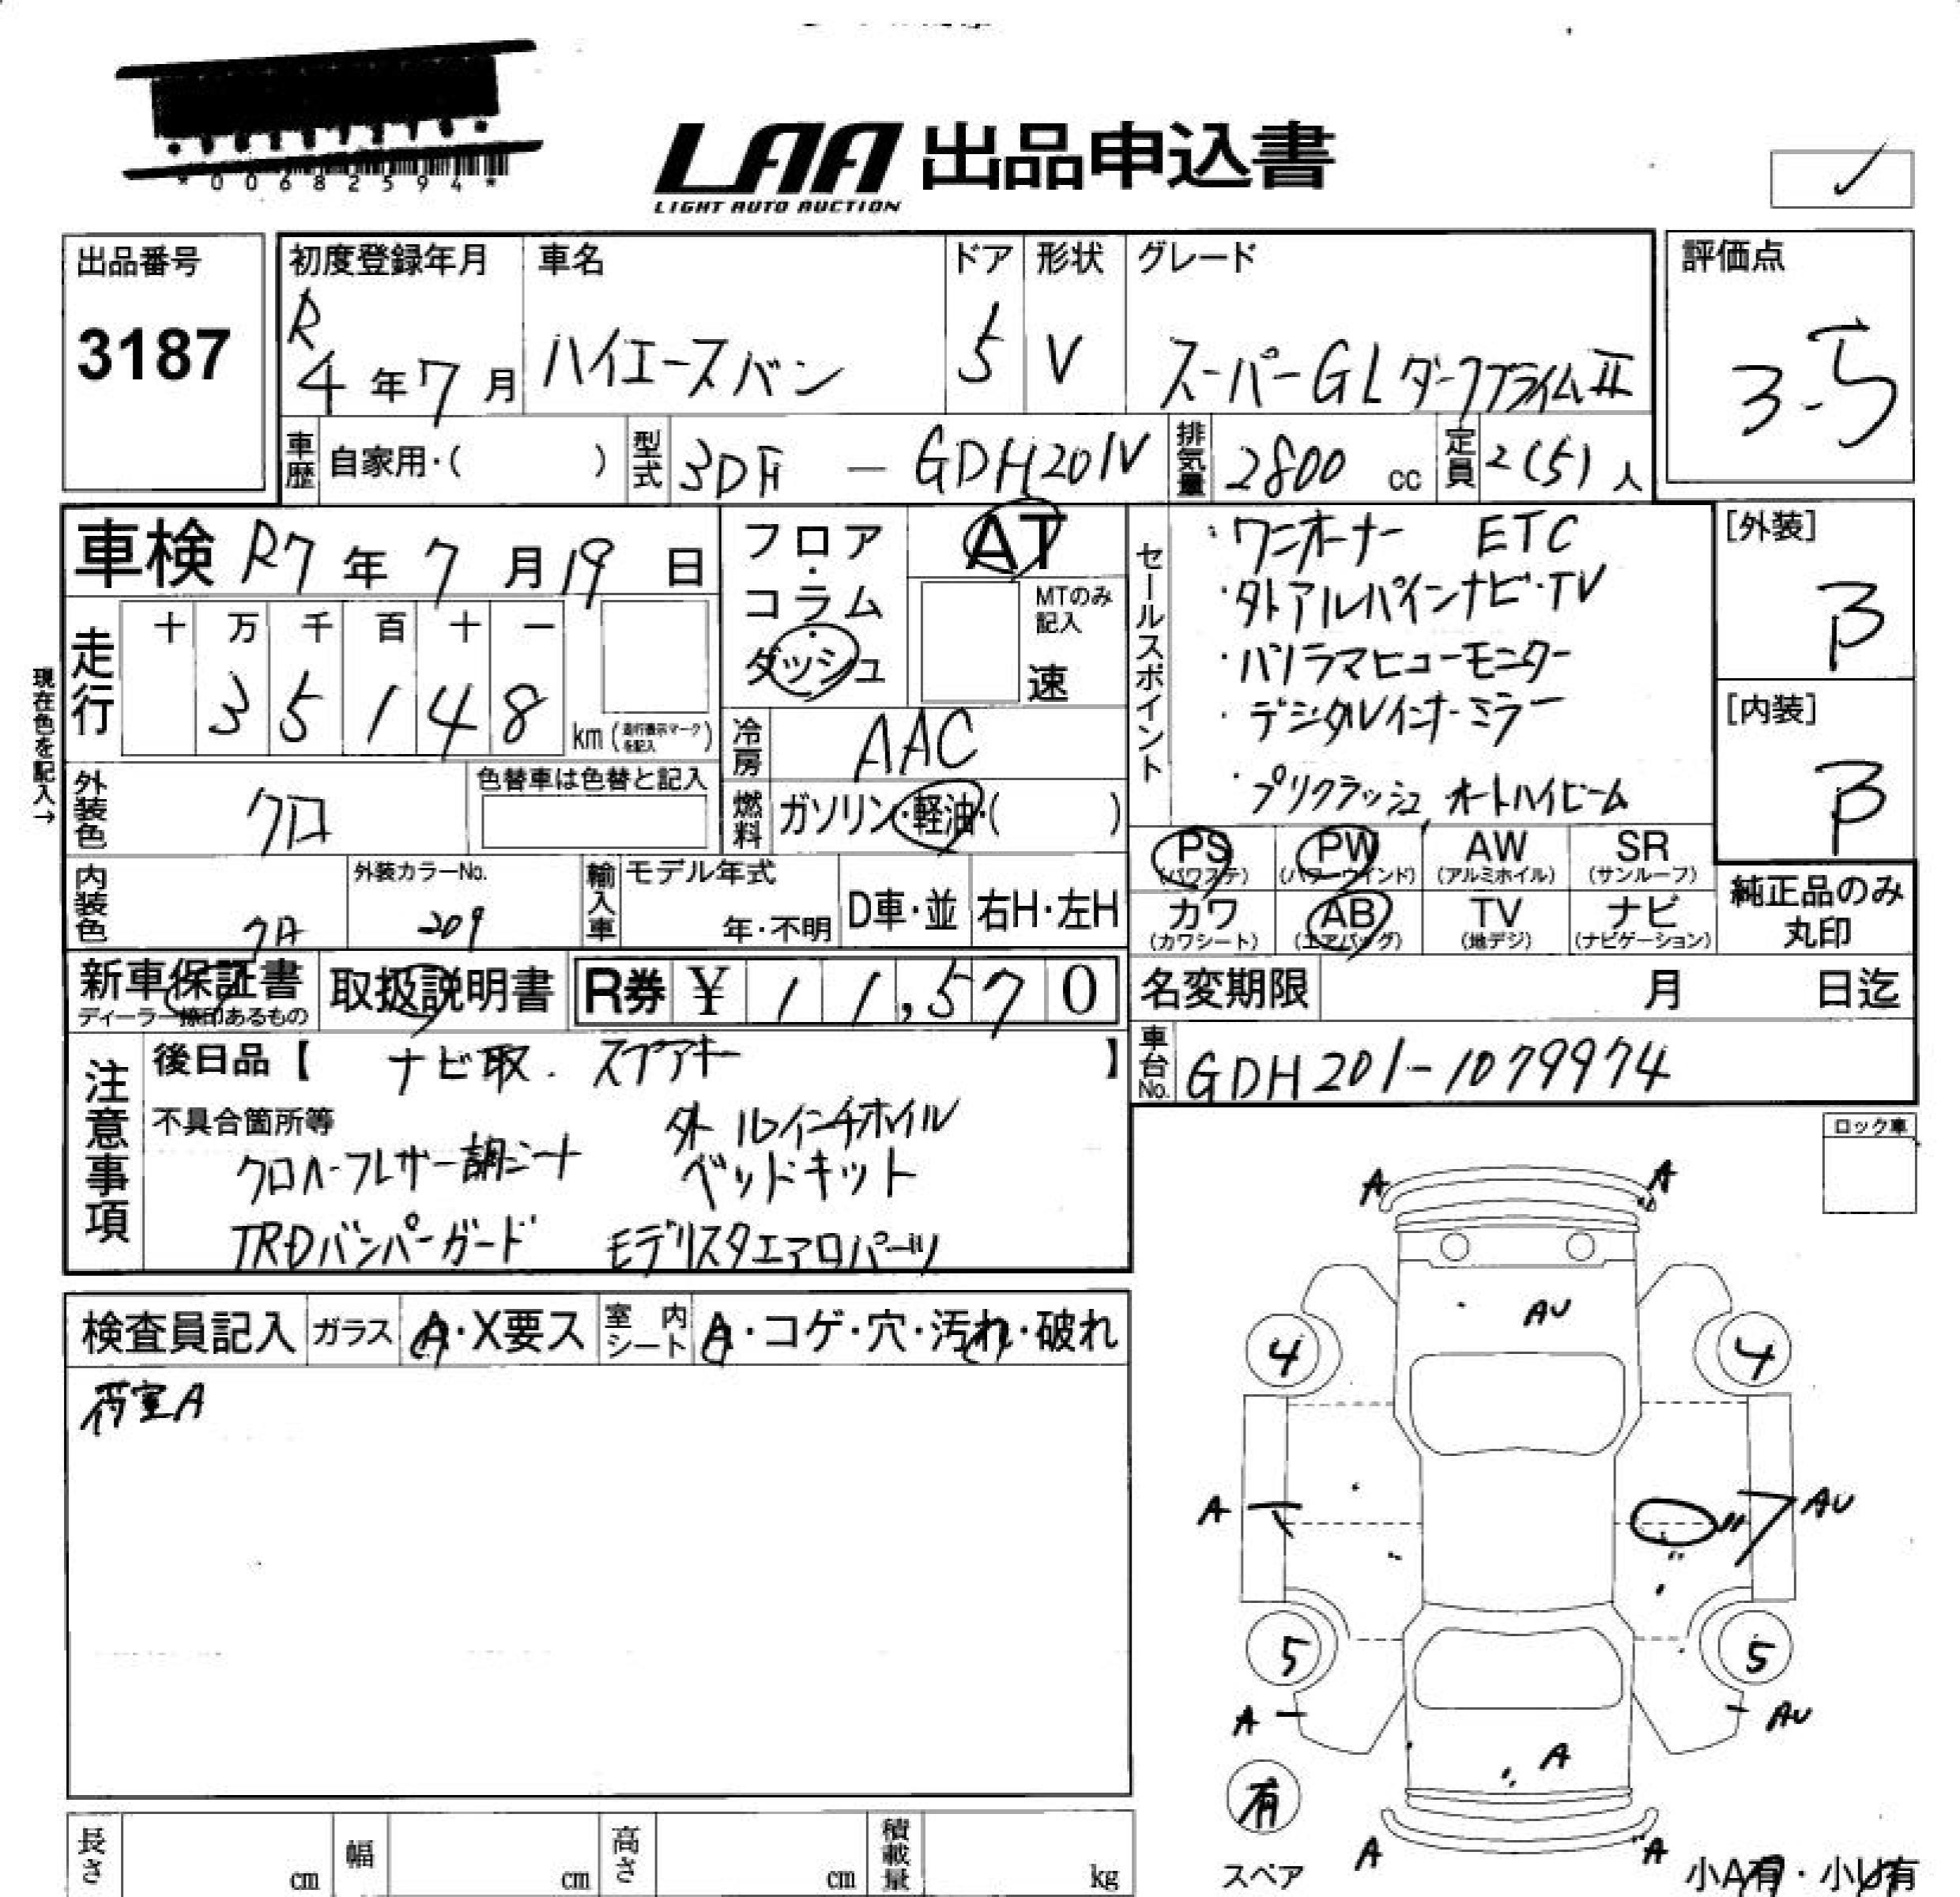 *00682594*
LAA 出品申込書
LIGHT AUTO AUCTION
出品番号
3187
初度登録年月
R
4年7月
車名
ハイエースバン
ドア
5
形状
V
グレード
スーパーGLダークプライムⅡ
評価点
3.5
車歴 自家用・( )
型式 3DF - GDH201V
排気量 2800 cc
定員 2(5)人
車検 R7年7月19日
走行
十 万 千 百 十 一
3 5 1 4 8
km(走行表示マークを記入)
現在色を記入→
フロア・コラム・ダッシュ
AT
MTのみ記入
速
冷房 AAC
燃料 ガソリン・軽油・( )
外装色 クロ
色替車は色替と記入
内装色 クロ
外装カラーNo.
209
輸入車
モデル年式
年・不明
D車・並
右H・左H
セールスポイント
・ワンオーナー ETC
・外アルパインナビ・TV
・パノラマビューモニター
・デジタルインナーミラー
・プリクラッシュ,オートハイビーム
[外装]
B
[内装]
B
PS
(パワステ)
PW
(パワーウインド)
AW
(アルミホイル)
SR
(サンルーフ)
カワ
(カワシート)
AB
(エアバッグ)
TV
(地デジ)
ナビ
(ナビゲーション)
純正品のみ
丸印
新車保証書
ディーラー捺印あるもの
取扱説明書
R券 ¥ 11,570
名変期限 月 日迄
車台No. GDH201-1079974
注意事項
後日品【 ナビ取. スペアキー 】
不具合箇所等
外 インチホイル
クロハーフレザー調シート ベッドキット
TRDバンパーガード モデリスタエアロパーツ
ロック車
検査員記入
ガラス
A・X要ス
室内シート
A・コゲ・穴・汚れ・破れ
荷室A
A A
AU
4 4
A AU
5 5
A AU
A
有
スペア
A A
小A有・小U有
長さ cm
幅 cm
高さ cm
積載量 kg